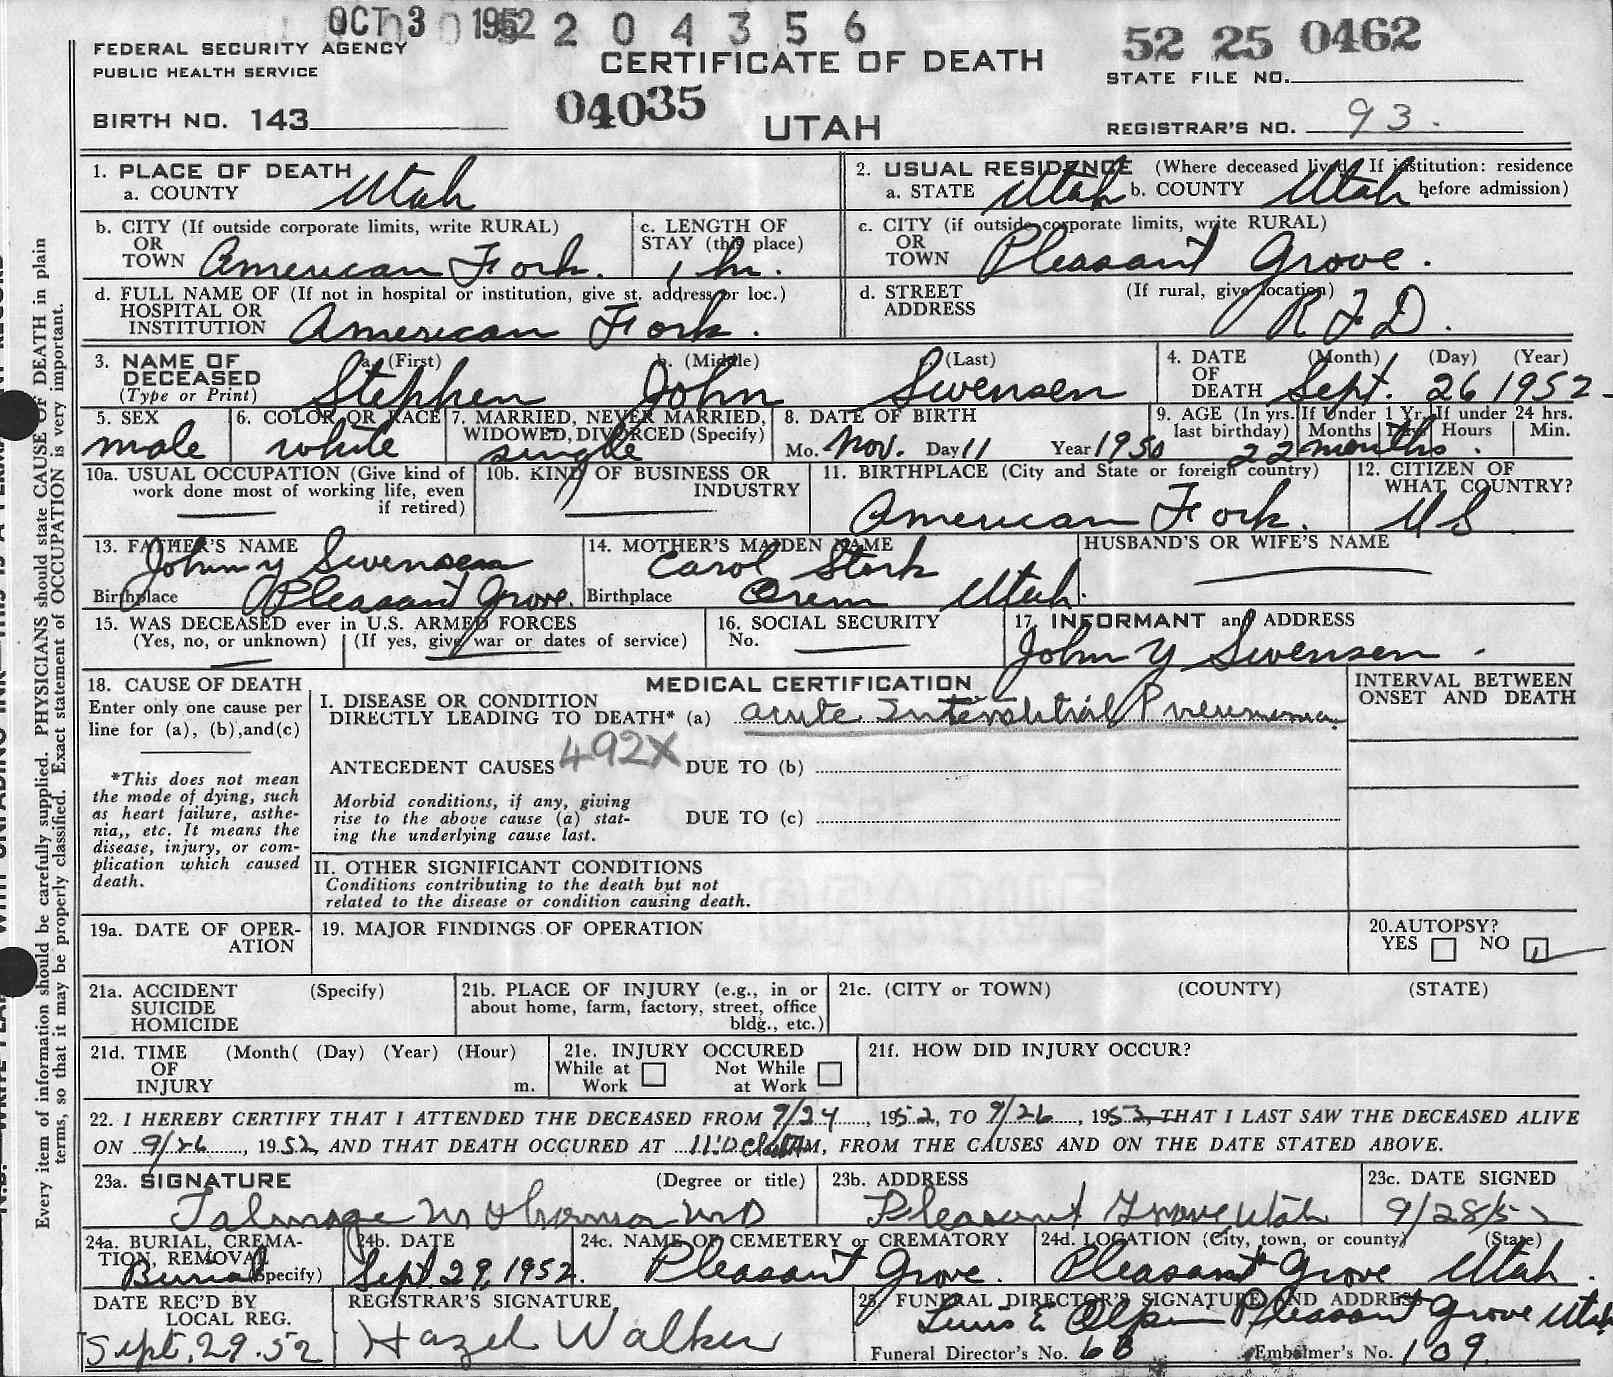 OCT 3 0 1952 2 0 4 3 5 6
52 25 0462
FEDERAL SECURITY AGENCY
PUBLIC HEALTH SERVICE
CERTIFICATE OF DEATH
STATE FILE NO.
BIRTH NO. 143
04035
UTAH
REGISTRAR'S NO. 93.
1. PLACE OF DEATH
a. COUNTY Utah
2. USUAL RESIDENCE (Where deceased lived. If institution: residence before admission)
a. STATE Utah b. COUNTY Utah
b. CITY (If outside corporate limits, write RURAL) OR TOWN American Fork.
c. LENGTH OF STAY (this place) 1 hr.
c. CITY (if outside corporate limits, write RURAL) OR TOWN Pleasant Grove.
d. FULL NAME OF (If not in hospital or institution, give st. address or loc.) HOSPITAL OR INSTITUTION American Fork.
d. STREET ADDRESS (If rural, give location) R F D.
3. NAME OF DECEASED (Type or Print)
a. (First) Stephen b. (Middle) John c. (Last) Swensen
4. DATE OF DEATH (Month) (Day) (Year) Sept. 26 1952
5. SEX male
6. COLOR OR RACE white
7. MARRIED, NEVER MARRIED, WIDOWED, DIVORCED (Specify) single
8. DATE OF BIRTH Mo. Nov. Day 11 Year 1950
9. AGE (In yrs. last birthday) If Under 1 Yr. Months Days If under 24 hrs. Hours Min. 22 months.
10a. USUAL OCCUPATION (Give kind of work done most of working life, even if retired)
10b. KIND OF BUSINESS OR INDUSTRY
11. BIRTHPLACE (City and State or foreign country) American Fork.
12. CITIZEN OF WHAT COUNTRY? U S
13. FATHER'S NAME John y Swensen
Birthplace Pleasant Grove.
14. MOTHER'S MAIDEN NAME Carol Stark
Birthplace Orem Utah.
HUSBAND'S OR WIFE'S NAME
15. WAS DECEASED ever in U.S. ARMED FORCES
(Yes, no, or unknown) (If yes, give war or dates of service)
16. SOCIAL SECURITY No.
17. INFORMANT and ADDRESS
John Y Swensen.
18. CAUSE OF DEATH
Enter only one cause per line for (a), (b), and (c)
*This does not mean the mode of dying, such as heart failure, asthenia,, etc. It means the disease, injury, or complication which caused death.
MEDICAL CERTIFICATION
INTERVAL BETWEEN ONSET AND DEATH
I. DISEASE OR CONDITION
DIRECTLY LEADING TO DEATH* (a) acute Interstitial Pneumonia
ANTECEDENT CAUSES 492X DUE TO (b)
Morbid conditions, if any, giving rise to the above cause (a) stating the underlying cause last.
DUE TO (c)
II. OTHER SIGNIFICANT CONDITIONS
Conditions contributing to the death but not related to the disease or condition causing death.
19a. DATE OF OPERATION
19. MAJOR FINDINGS OF OPERATION
20. AUTOPSY?
YES NO
21a. ACCIDENT SUICIDE HOMICIDE (Specify)
21b. PLACE OF INJURY (e.g., in or about home, farm, factory, street, office bldg., etc.)
21c. (CITY or TOWN) (COUNTY) (STATE)
21d. TIME OF INJURY (Month( (Day) (Year) (Hour) m.
21e. INJURY OCCURED
While at Work Not While at Work
21f. HOW DID INJURY OCCUR?
22. I HEREBY CERTIFY THAT I ATTENDED THE DECEASED FROM 9/24, 1952, TO 9/26, 1952, THAT I LAST SAW THE DECEASED ALIVE
ON 9/26, 1952, AND THAT DEATH OCCURED AT M, FROM THE CAUSES AND ON THE DATE STATED ABOVE.
23a. SIGNATURE (Degree or title)
23b. ADDRESS Pleasant Grove Utah
23c. DATE SIGNED 9/28/52
24a. BURIAL, CREMATION, REMOVAL (Specify) Burial
24b. DATE Sept 29, 1952.
24c. NAME OF CEMETERY or CREMATORY Pleasant Grove.
24d. LOCATION (City, town, or county) (State) Pleasant Grove Utah.
DATE REC'D BY LOCAL REG. Sept. 29. 52
REGISTRAR'S SIGNATURE Hazel Walker
25. FUNERAL DIRECTOR'S SIGNATURE AND ADDRESS
E Olpin Pleasant Grove Utah
Funeral Director's No. 68 Embalmer's No. 109.
Every item of information should be carefully supplied. PHYSICIANS should state CAUSE OF DEATH in plain
terms, so that it may be properly classified. Exact statement of OCCUPATION is very important.